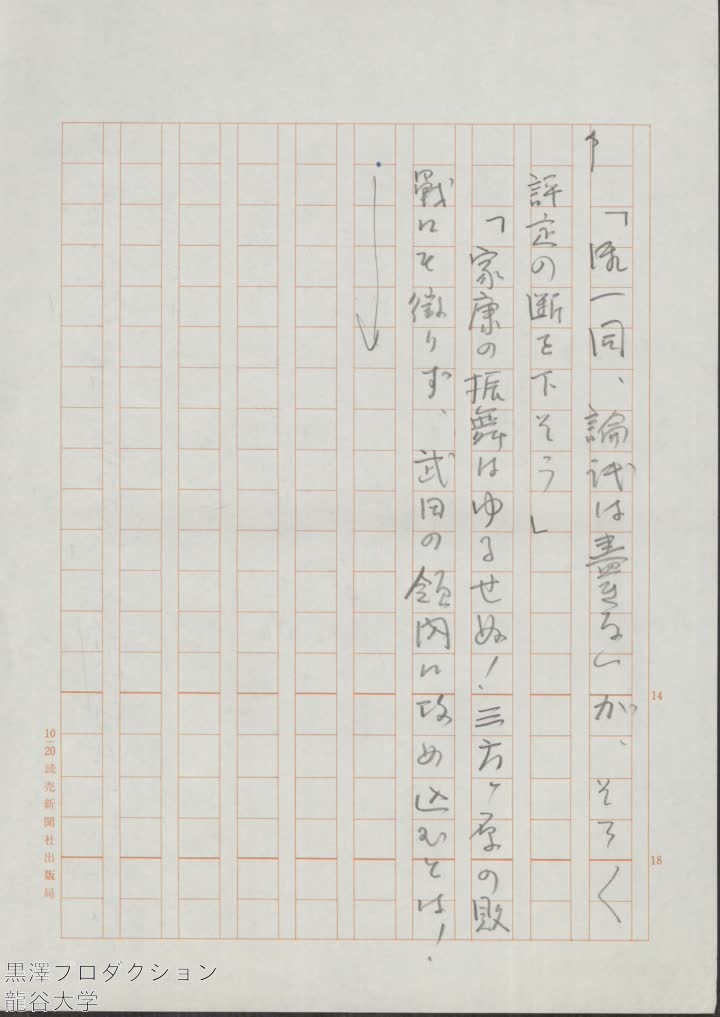 「各々一同、論議は盡きないが、そろ〱
評定の断を下そう」
「家康の振舞はゆるせぬ！三方ヶ原の敗
戰にも懲りず、武田の領内に攻め込むとは！
14
18
10
20
読売新聞社出版局
黒澤プロダクション
龍谷大学